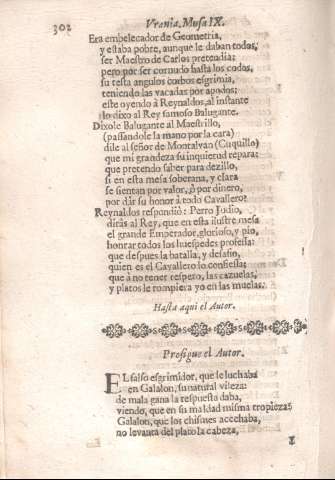 302
Vrania, Musa IX.
Era embelecador de Geometria,
y estaba pobre, aunque le daban todos,
ser Maestro de Carlos pretendia:
pero por ser cornudo hasta los codos,
su testa angulos corbos esgrimia,
teniendo las vacadas por apodos;
este oyendo à Reynaldos, al instante
lo dixo al Rey famoso Balugante.
Dixole Balugante al Maestrillo,
(passandole la mano por la cara)
dile al señor de Montalvan (Cuquillo)
que mi grandeza su inquietud repara:
que pretendo saber para dezillo,
si en esta mesa soberana, y clara
se sientan por valor, ò por dinero,
por dàr su honor à todo Cavallero?
Reynaldos respondiò: Perro Judio,
diràs al Rey, que en esta ilustre mesa
el grande Emperador, glorioso, y pio,
honrar todos los huespedes professa:
que despues la batalla, y desafio,
quien es el Cavallero lo confiessa:
que à no tener respeto, las cazuelas,
y platos le rompiera yo en las muelas.
Hasta aqui el Autor.
Prosigue el Autor.
EL falso esgrimidor, que le luchaba
en Galalon, su natural vileza:
de mala gana la respuesta daba,
viendo, que en su maldad misma tropieza;
Galalon, que los chismes acechaba,
no levanta del plato la cabeza,